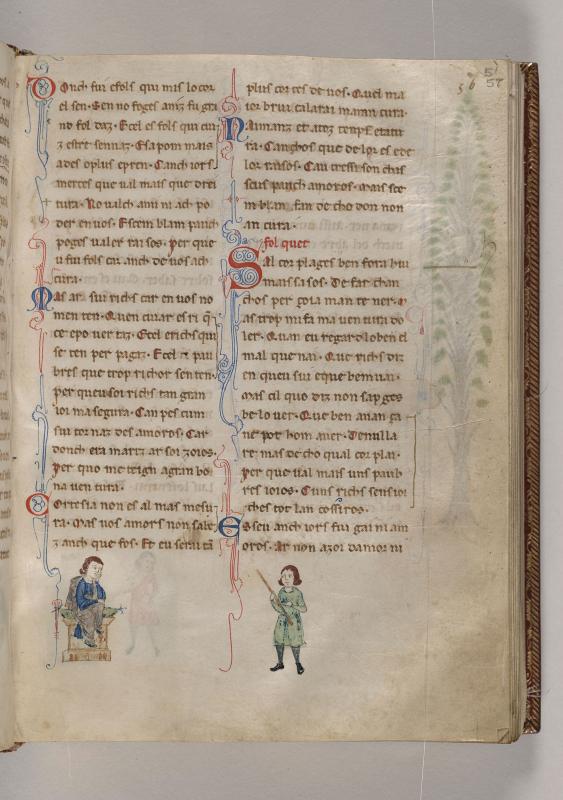 56
57
Donch fui efols qui mis lo cor
el sen. Sen no foges anz fu gra
no fol daz. Ecel es fols qui cui
z estre sennaz. Esa pom mais
ades oplus epren. Canch iors
merces que ual mais que drei
tura. No ualch ami ni ach po
der en uos. Es cem blam pauch
poges ualer raisos. Per que
u fui fols car anch de uos ach
cura.
Mas ar sui richs car en uos no
men ten. Quen cuiar es ri
ce epo uer taz. Ecel erichs qui
se ten per pagaz. Ecel pau
bres que trop richor sen ten.
per queu soi richs tan gran
ioi ma segura. Can pes cum
sui tornaz des amoros. Car
donch era marriz ar soi ioios.
Per quo me teign a gran bo
na uen tura.
Cortesia non es al mas mesu
ra. Mas uos amors non sabe
z anch que fos. Et eu serai
plus cortes de uos. Quel ma
ior brui calarai maran cura.
Naimanz et atoz temps etaiu
ra. Canchos que de lor es ede
lor raisos. Cau tressi son chas
scus pauch amoros. Mais sce
m blam fan de cho don non
an cura.
fol quet
Sal cor plages ben fora hui
mais sasos. De far chan
chos per ioia man te ner.
as trop mi fa ma uen tura do
ler. Quan eu regard lo ben el
mal que nai. Que richs diz
en queu sui e que bem uai.
Mas cil quo diz non sap ges
be lo uer. Que ben anan ça
ne pot hom auer. De nulla
re mas de cho qual cor plai.
Per que ual mais uns paub
res ioios. Cuns richs sens ioi
ches tot lan cossiros.
Esseu anch iors fui gai ni am
oros. Ar non azoi damor ni